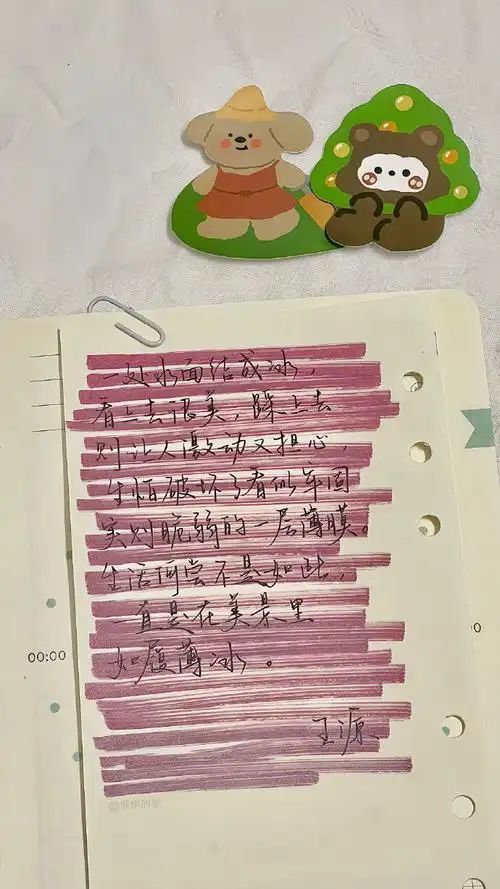 一处水面结成冰，
看上去很美，踩上去
则让人激动又担心，
生怕破坏了看似牢固
实则脆弱的一层薄膜。
生活何尝不是如此，
一直是在美景里
如履薄冰。
王源
00:00
0